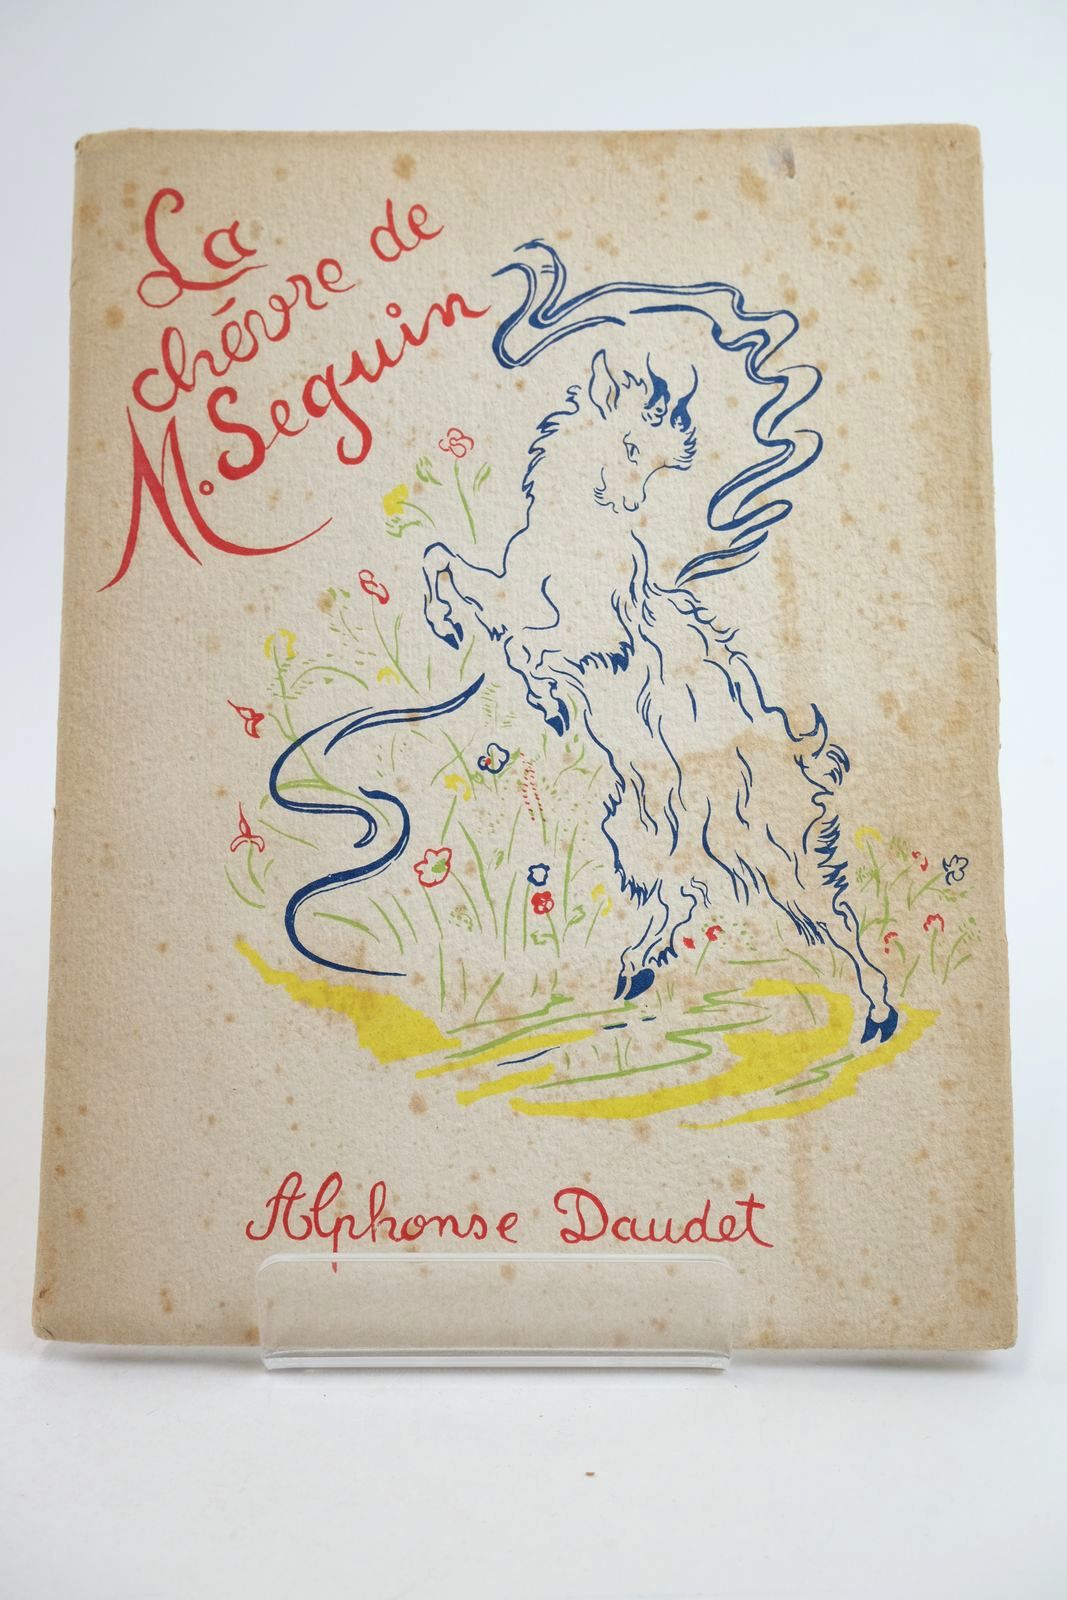 La
chévre de
M. Seguin
Alphonse Daudet